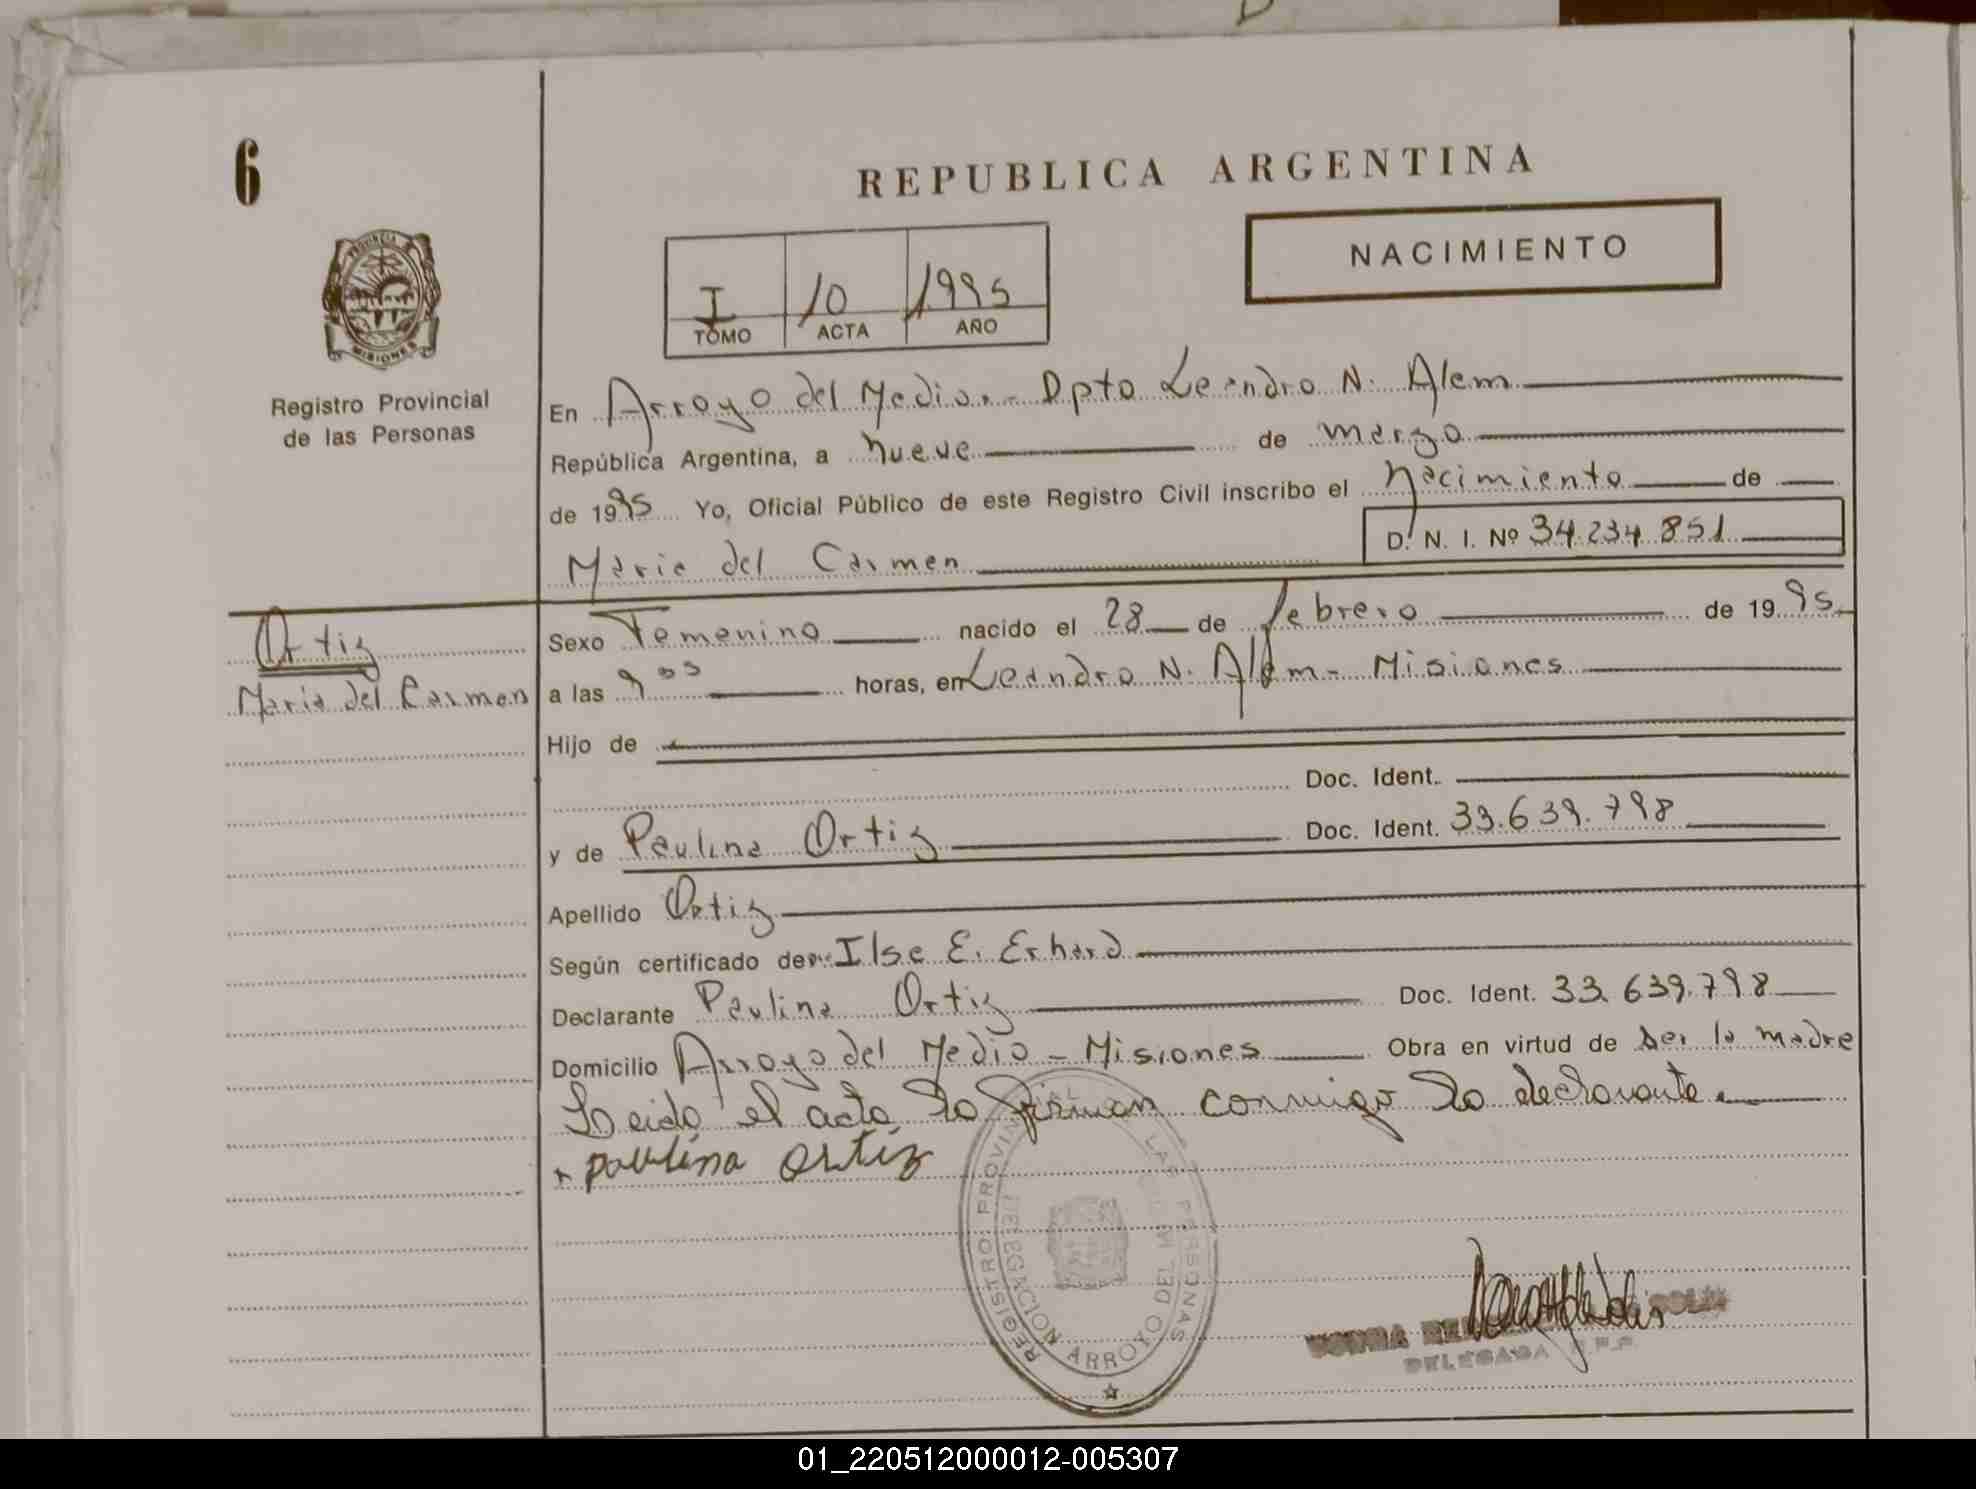 6
REPUBLICA ARGENTINA
NACIMIENTO
I 10 1995
TOMO ACTA AÑO
PROVINCIA
MISIONES
Registro Provincial
de las Personas
En Arroyo del Medio.- Dpto Leandro N. Alem
República Argentina, a nueve de marzo
de 1995 Yo, Oficial Público de este Registro Civil inscribo el nacimiento de
D. N. I. Nº 34.234.851
Maria del Carmen
Ortiz
Maria del Carmen
Sexo Femenino nacido el 28 de febrero de 1995
a las 9 horas, en Leandro N. Alem - Misiones
Hijo de
Doc. Ident.
y de Paulina Ortiz Doc. Ident. 33.639.798
Apellido Ortiz
Según certificado de Ilse E. Erhard
Declarante Paulina Ortiz Doc. Ident. 33.639.798
Domicilio Arroyo del Medio - Misiones Obra en virtud de ser la madre
Leida el acta la firman conmigo la declarante.
paulina ortiz
REGISTRO PROVINCIAL DE LAS PERSONAS
DELEGACION ARROYO DEL MEDIO
DELEGADA R.P.P.
01_220512000012-005307